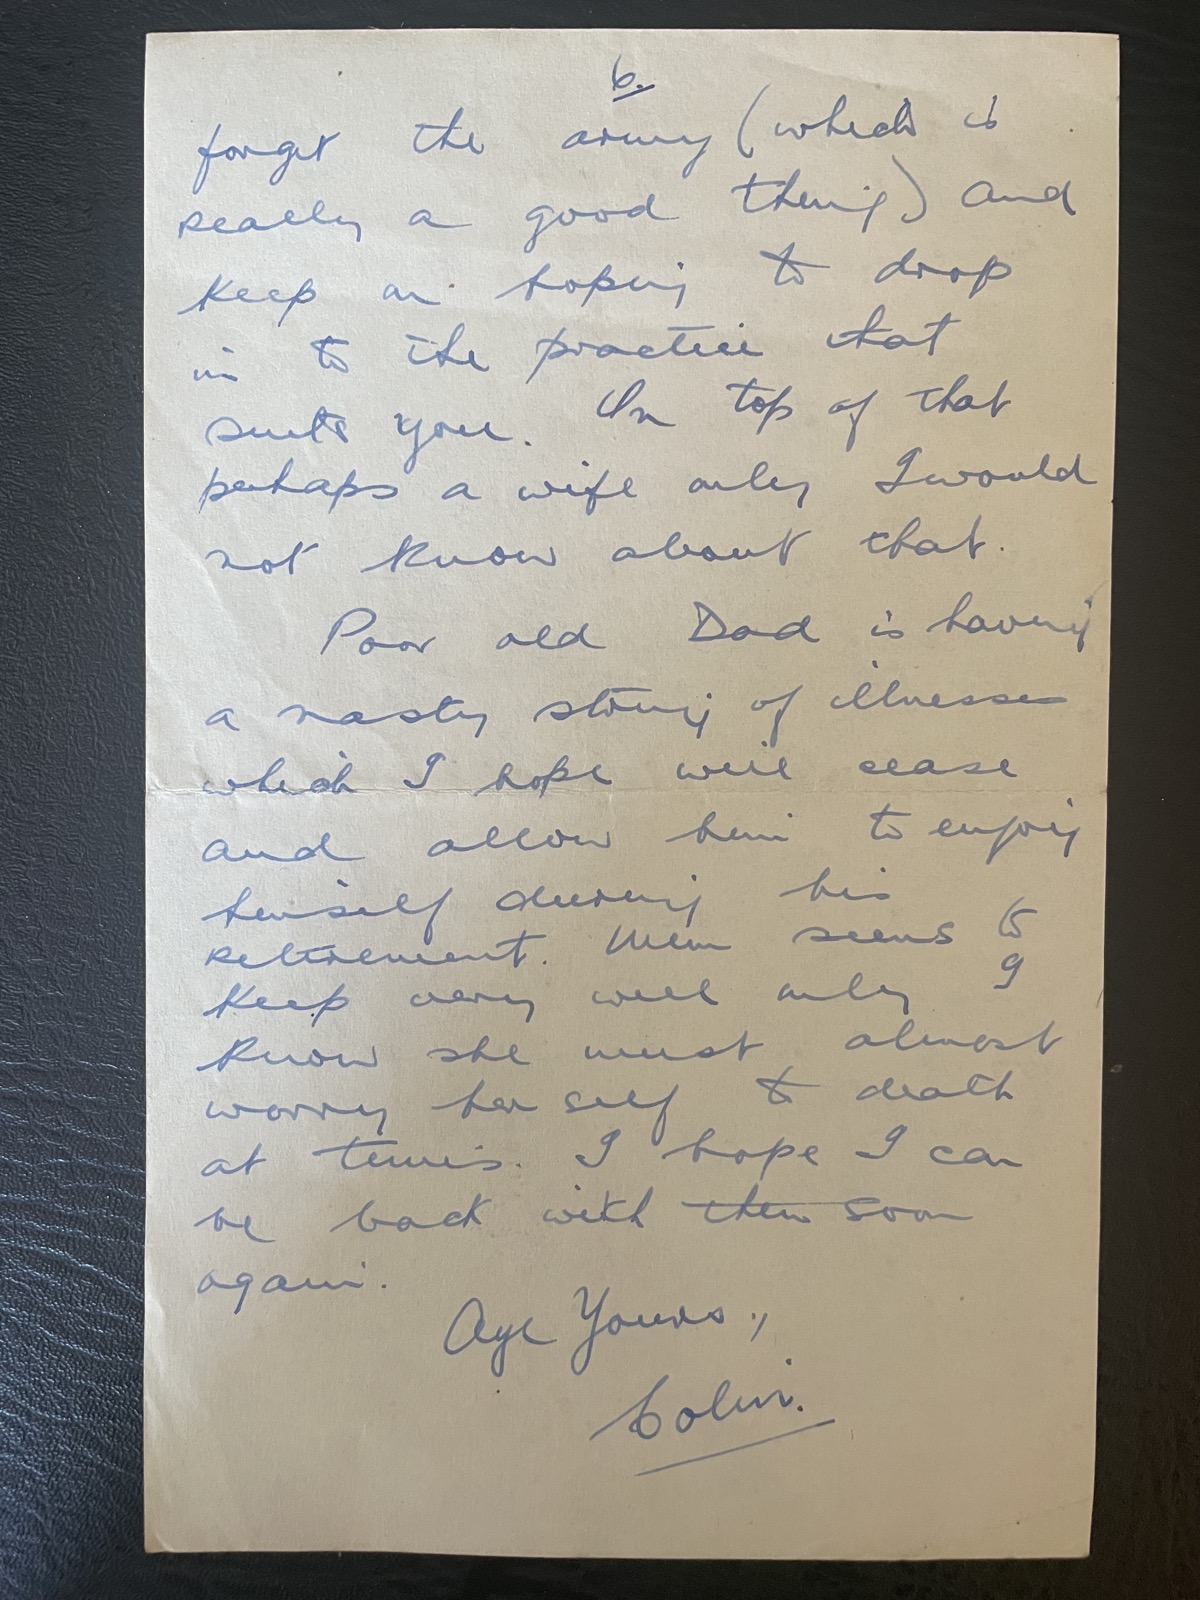 6.
forget the army (which is
really a good thing) and
keep on hoping to drop
in to the practice that
suits you. On top of that
perhaps a wife only I would
not know about that.
Poor old Dad is having
a nasty string of illnesses
which I hope will cease
and allow him to enjoy
himself during his
retirement. Mum seems to
keep very well only I
know she must almost
worry her self to death
at times. I hope I can
be back with them soon
again.
Aye Yours,
Colin.